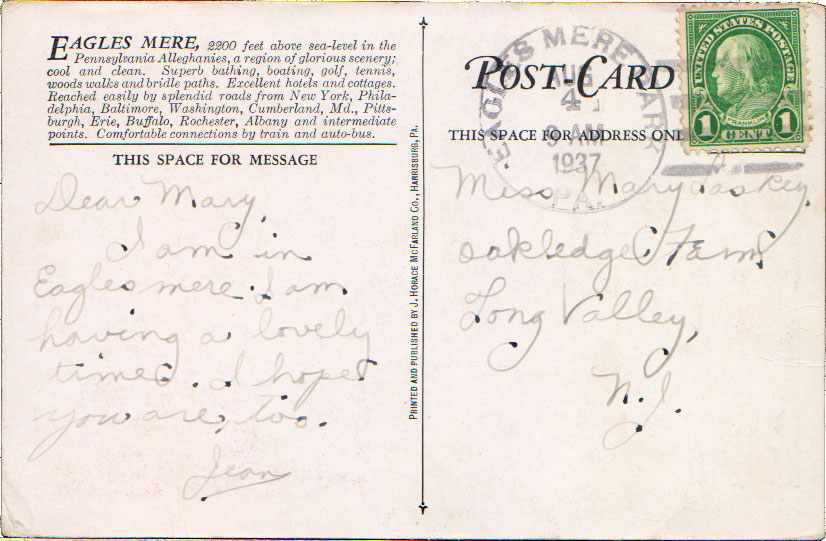 EAGLES MERE, 2200 feet above sea-level in the
Pennsylvania Alleghanies, a region of glorious scenery;
cool and clean. Superb bathing, boating, golf, tennis,
woods walks and bridle paths. Excellent hotels and cottages.
Reached easily by splendid roads from New York, Phila-
delphia, Baltimore, Washington, Cumberland, Md., Pitts-
burgh, Erie, Buffalo, Rochester, Albany and intermediate
points. Comfortable connections by train and auto-bus.
THIS SPACE FOR MESSAGE
Dear Mary,
I am in
Eagles mere. I am
having a lovely
time. I hope
you are, too.
Jean
PRINTED AND PUBLISHED BY J. HORACE MCFARLAND CO., HARRISBURG, PA.
POST-CARD
THIS SPACE FOR ADDRESS ONL
EAGLES MERE PARK
AUG
4
9 AM
1937
PA.
UNITED STATES POSTAGE
FRANKLIN
1 CENT 1
Miss Mary
oakledge Farm
Long Valley,
N.J.